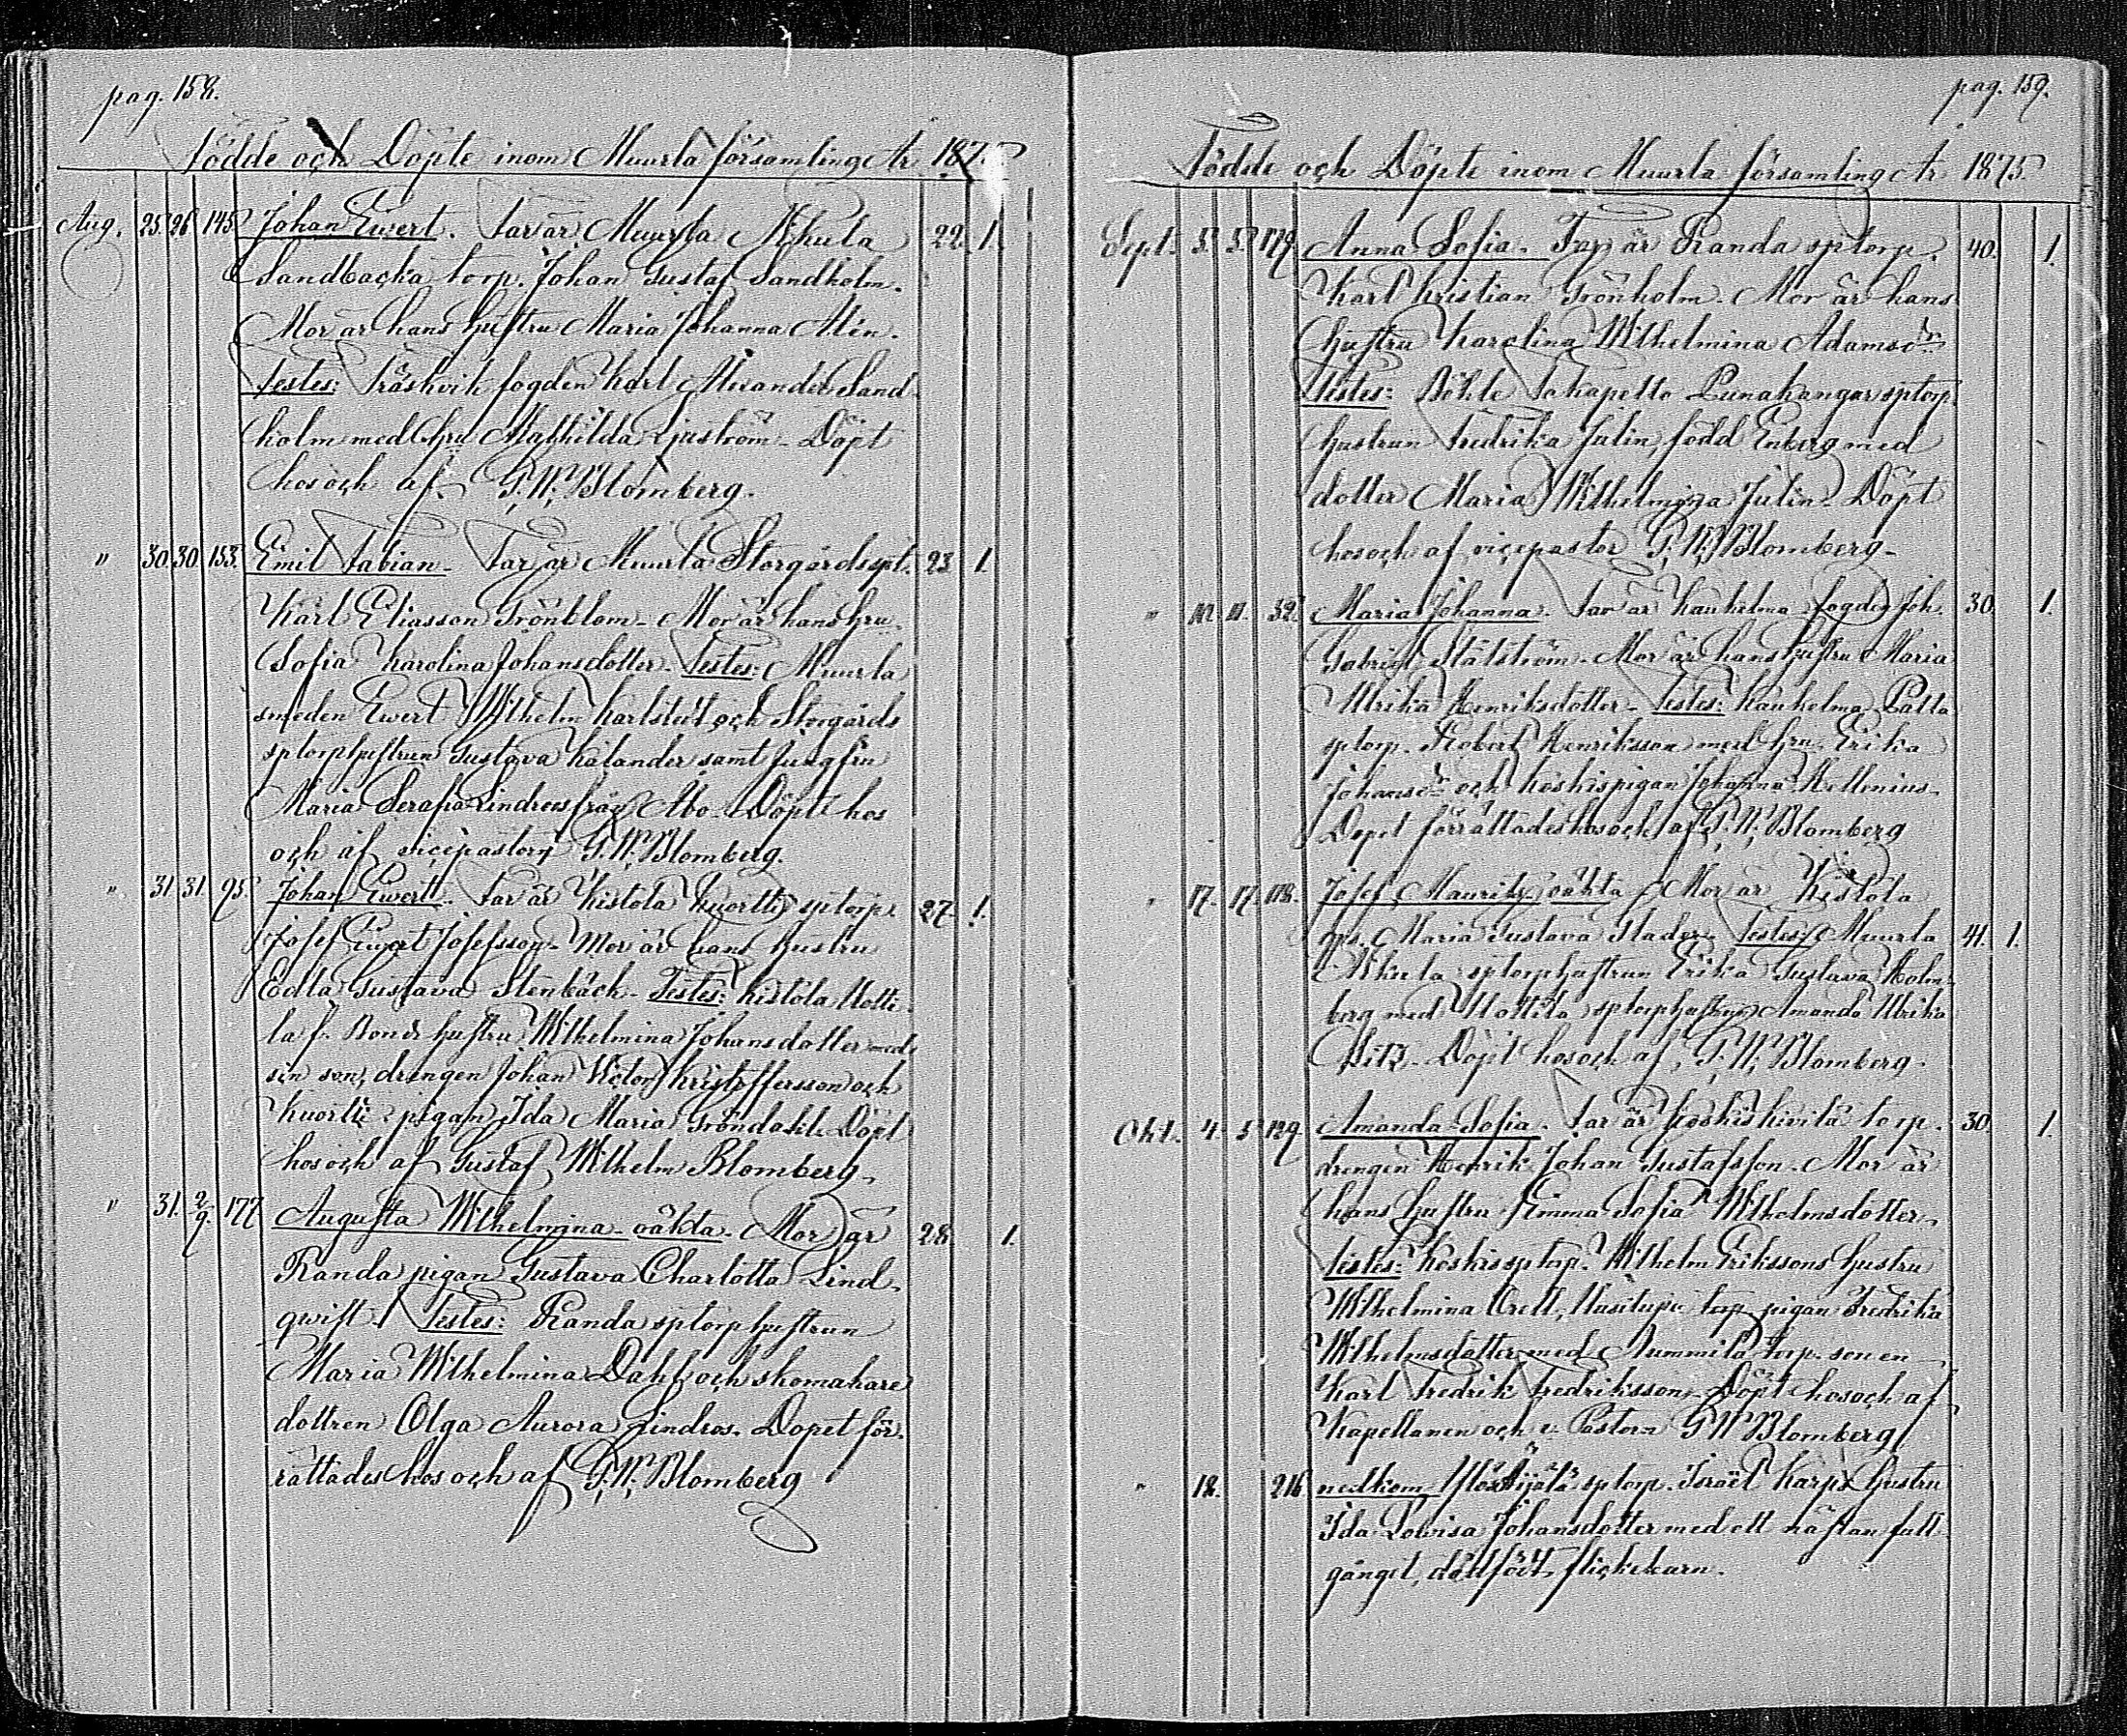 pag. 158.
Födde och Döpte inom Muurla församling År 187
Aug. 25. 26. 145. Johan Ewert. Far är Muurla Nikula 22. 1.
Sandbacka torp. Johan Gustaf Sandholm.
Mor är hans hustru Maria Johanna Alin.
Testes: Träskvik fogden Karl Alexander Sand-
holm med hru Mathilda Ljuström - Döpt
hos och af G. W. Blomberg.
" 30. 30. 153. Emil Fabian - Far är Muurla Storgårds spt. 23 1.
Karl Eliasson Grönblom - Mor är hans hru
Sofia Karolina Johansdotter - Testes: Muurla
smeden Ewert Wilhelm Karlstedt och Storgårds
sptorphustrun Gustava Kalander samt Jungfru
Maria Serafia Lindroos från Åbo - Döpt hos
och af vicepastorn G. W. Blomberg.
" 31. 31. 95. Johan Ewert. Far är Kistola Kuortti sptorp. 27. 1.
Josef Ewert Josefsson - Mor är hans hustru
Edla Gustava Stenbäck - Testes: Kistola Uotti-
la f. Bonds hustru Wilhelmina Johansdotter med
sin son, drängen Johan Victor Kristoffersson och
Kuortti pigan Ida Maria Gröndahl. Döpt
hos och af Gustaf Wilhelm Blomberg.
" 31. 2/9. 177 Augusta Wilhelmina - oäkta - Mor är 28. 1.
Randa pigan Gustava Charlotta Lind-
qvist. Testes: Randa sptorphustrun
Maria Wilhelmina Dahl och skomakare
dottren Olga Aurora Lindros. Dopet för-
rättades hos och af G. W. Blomberg
pag. 159.
Födde och Döpte inom Muurla församling År 1875.
Sept. 5. 5. 179. Anna Sofia - Far är Randa sptorp. 40. 1.
Karl Kristian Grönholm - Mor är hans
hustru Karolina Wilhelmina Adamsdr
Testes: Böhle Punakangas sptorp.
hustrun Fredrika Julin, född Enberg med
dotter Maria Wilhelmina Julin - Döpt
hos och af vicepastor G. W. Blomberg -
" 10. 11. 52. Maria Johanna. Far är Kaukelma fogden Joh. 30. 1.
Gabriel Stålström - Mor är hans hustru Maria
Ulrika Henriksdotter - Testes: Kaukelma Palla
sptorp. Robert Henriksson med hru Erika
Johansdr och Koskispigan Johanna Hellenius -
Dopet förrättades hos och af G. W. Blomberg
" 17. 17. 118. Josef Mauritz oäkta - Mor är Kistola
Maria Gustava Glader - Testes: Muurla 41. 1.
Nikula sptorphustrun Erika Gustava Holm-
berg med Uottila sptorphustrun Amanda Ulrika
Döpt hos och af, G. W. Blomberg -
Okt. 4. 5. 129. Amanda Sofia. Far är Koskis Kivilä torp. 30. 1.
drengen Henrik Johan Gustafsson - Mor är
hans hustru Emma Sofia Wilhelmsdotter -
Testes: Koskis sptorp. Wilhelm Erikssons hustru
Wilhelmina Orell, Uusitupa torp. pigan Fredrika
Wilhelmsdotter med Nummila torp. sonen
Karl Fredrik Fredriksson - Döpt hos och af
Kapellanen och v. Pastorn G W Blomberg
" 18. 216 nedkom sptorp. Israel Karps hustru
Ida Lovisa Johansdotter med ett nästan full-
gånget, dödfödt flickebarn.